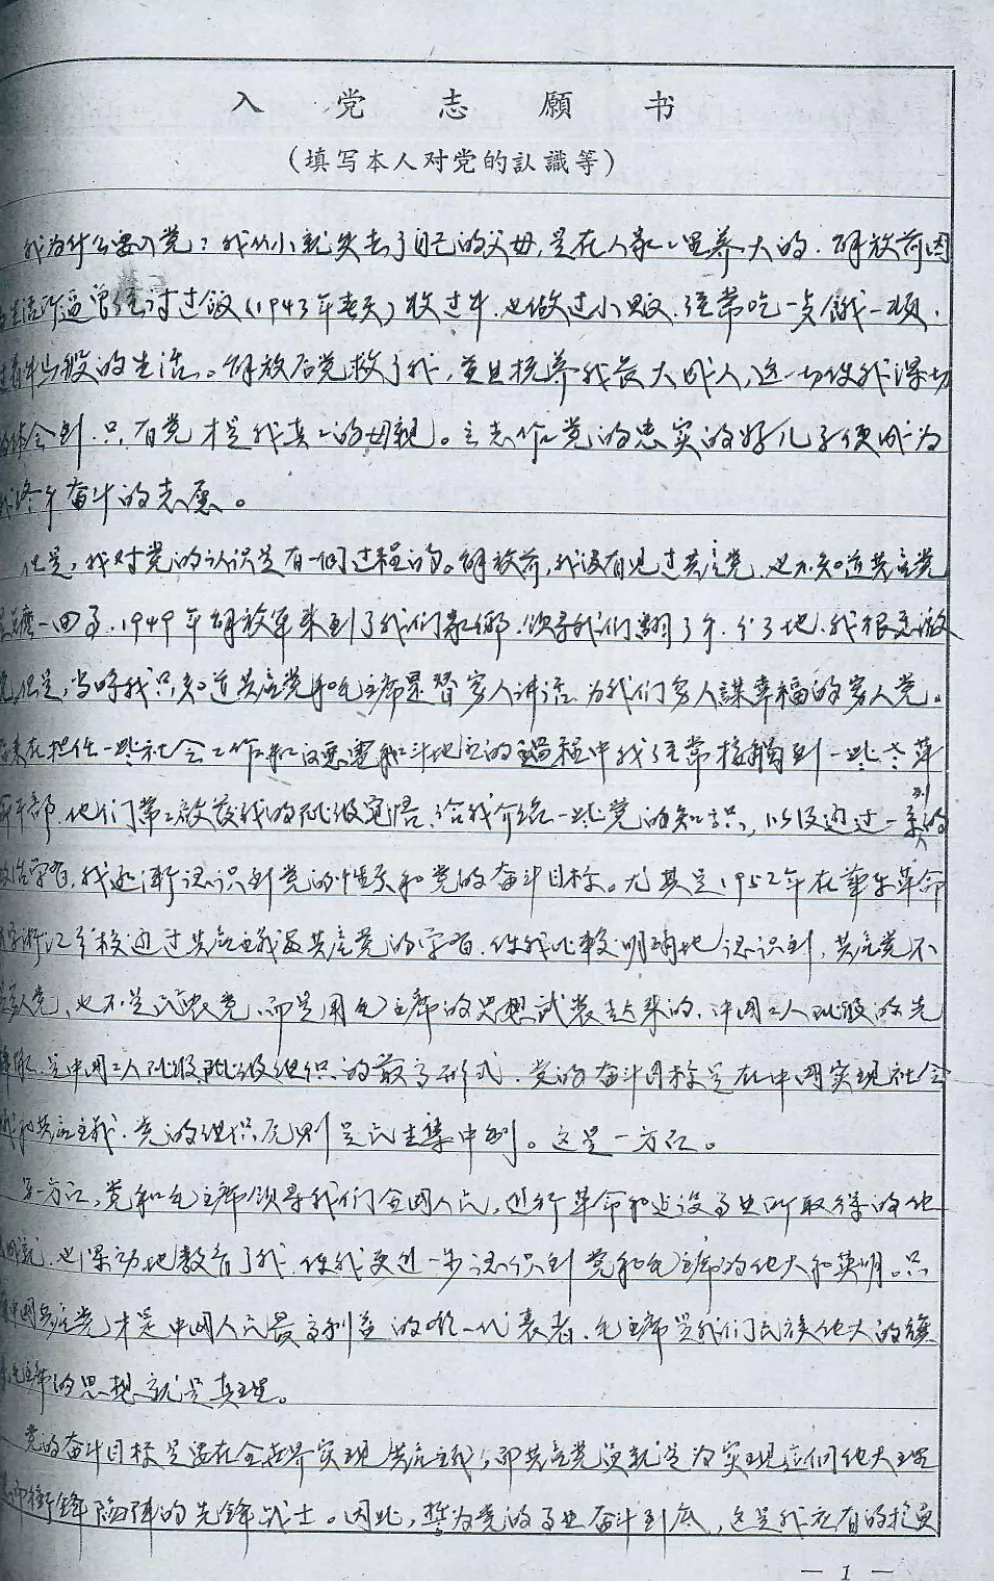 入党志願书
(填写本人对党的訫識等)
我为什么要入党？我从小就失去了自己的父母,是在人家家里养大的.解放前因
生活所逼曾经讨过饭(1943年春天)牧过牛.也做过小贩.经常吃一夿饿一顿.
过着牛马般的生活。解放后党救了我,並且抚养我长大成人,这一切使我深切
的体会到.只有党才是我真正的母親。立志作党的忠实的好儿子便成为
我终身奋斗的志愿。
但是,我对党的认识是有一個过程的。解放前,我没有见过共产党.也不知道共产党
是怎麽一回事.1949年解放军来到了我们家鄉.领导我们翻了身.分了地.我很感激
党.但是,当時我只知道共产党和毛主席是替穷人讲话.为我们穷人謀幸福的穷人党。
后来在担任一些社会工作和反恶霸和斗地主的過程中我经常接觸到一些老革
命干部.他们常常啟發我的阶级觉悟.给我介绍一些党的知识,以及通过一系列的
政治学習,我逐渐认识到党的性质和党的奋斗目标。尤其是1952年在華东革命
大学浙江分校通过共产主義及共产党的学習.使我比較明确地认识到,共产党不
是穷人党,也不是农民党,而是用毛主席的思想武装起来的.中国工人阶级的先
锋队.是中国工人阶级阶级组织的最高形式.党的奋斗目标是在中國实现社会
主義和共产主義.党的组织原则是民主集中制。这是一方面。
另一方面,党和毛主席领导我们全國人民,进行革命和建设事业所取得的伟
大成就.也深刻地教育了我.使我更进一步认识到党和毛主席的伟大和英明。只
有中國共产党,才是中國人民最高利益的唯一代表者.毛主席是我们民族伟大的旗
手,毛主席的思想就是真理。
党的奋斗目标是要在全世界实现共产主義,而共产党员就是为实现這個伟大理
想而衝鋒陷阵的先鋒战士。因此,誓为党的事业奋斗到底,这是我应有的
— 1 —